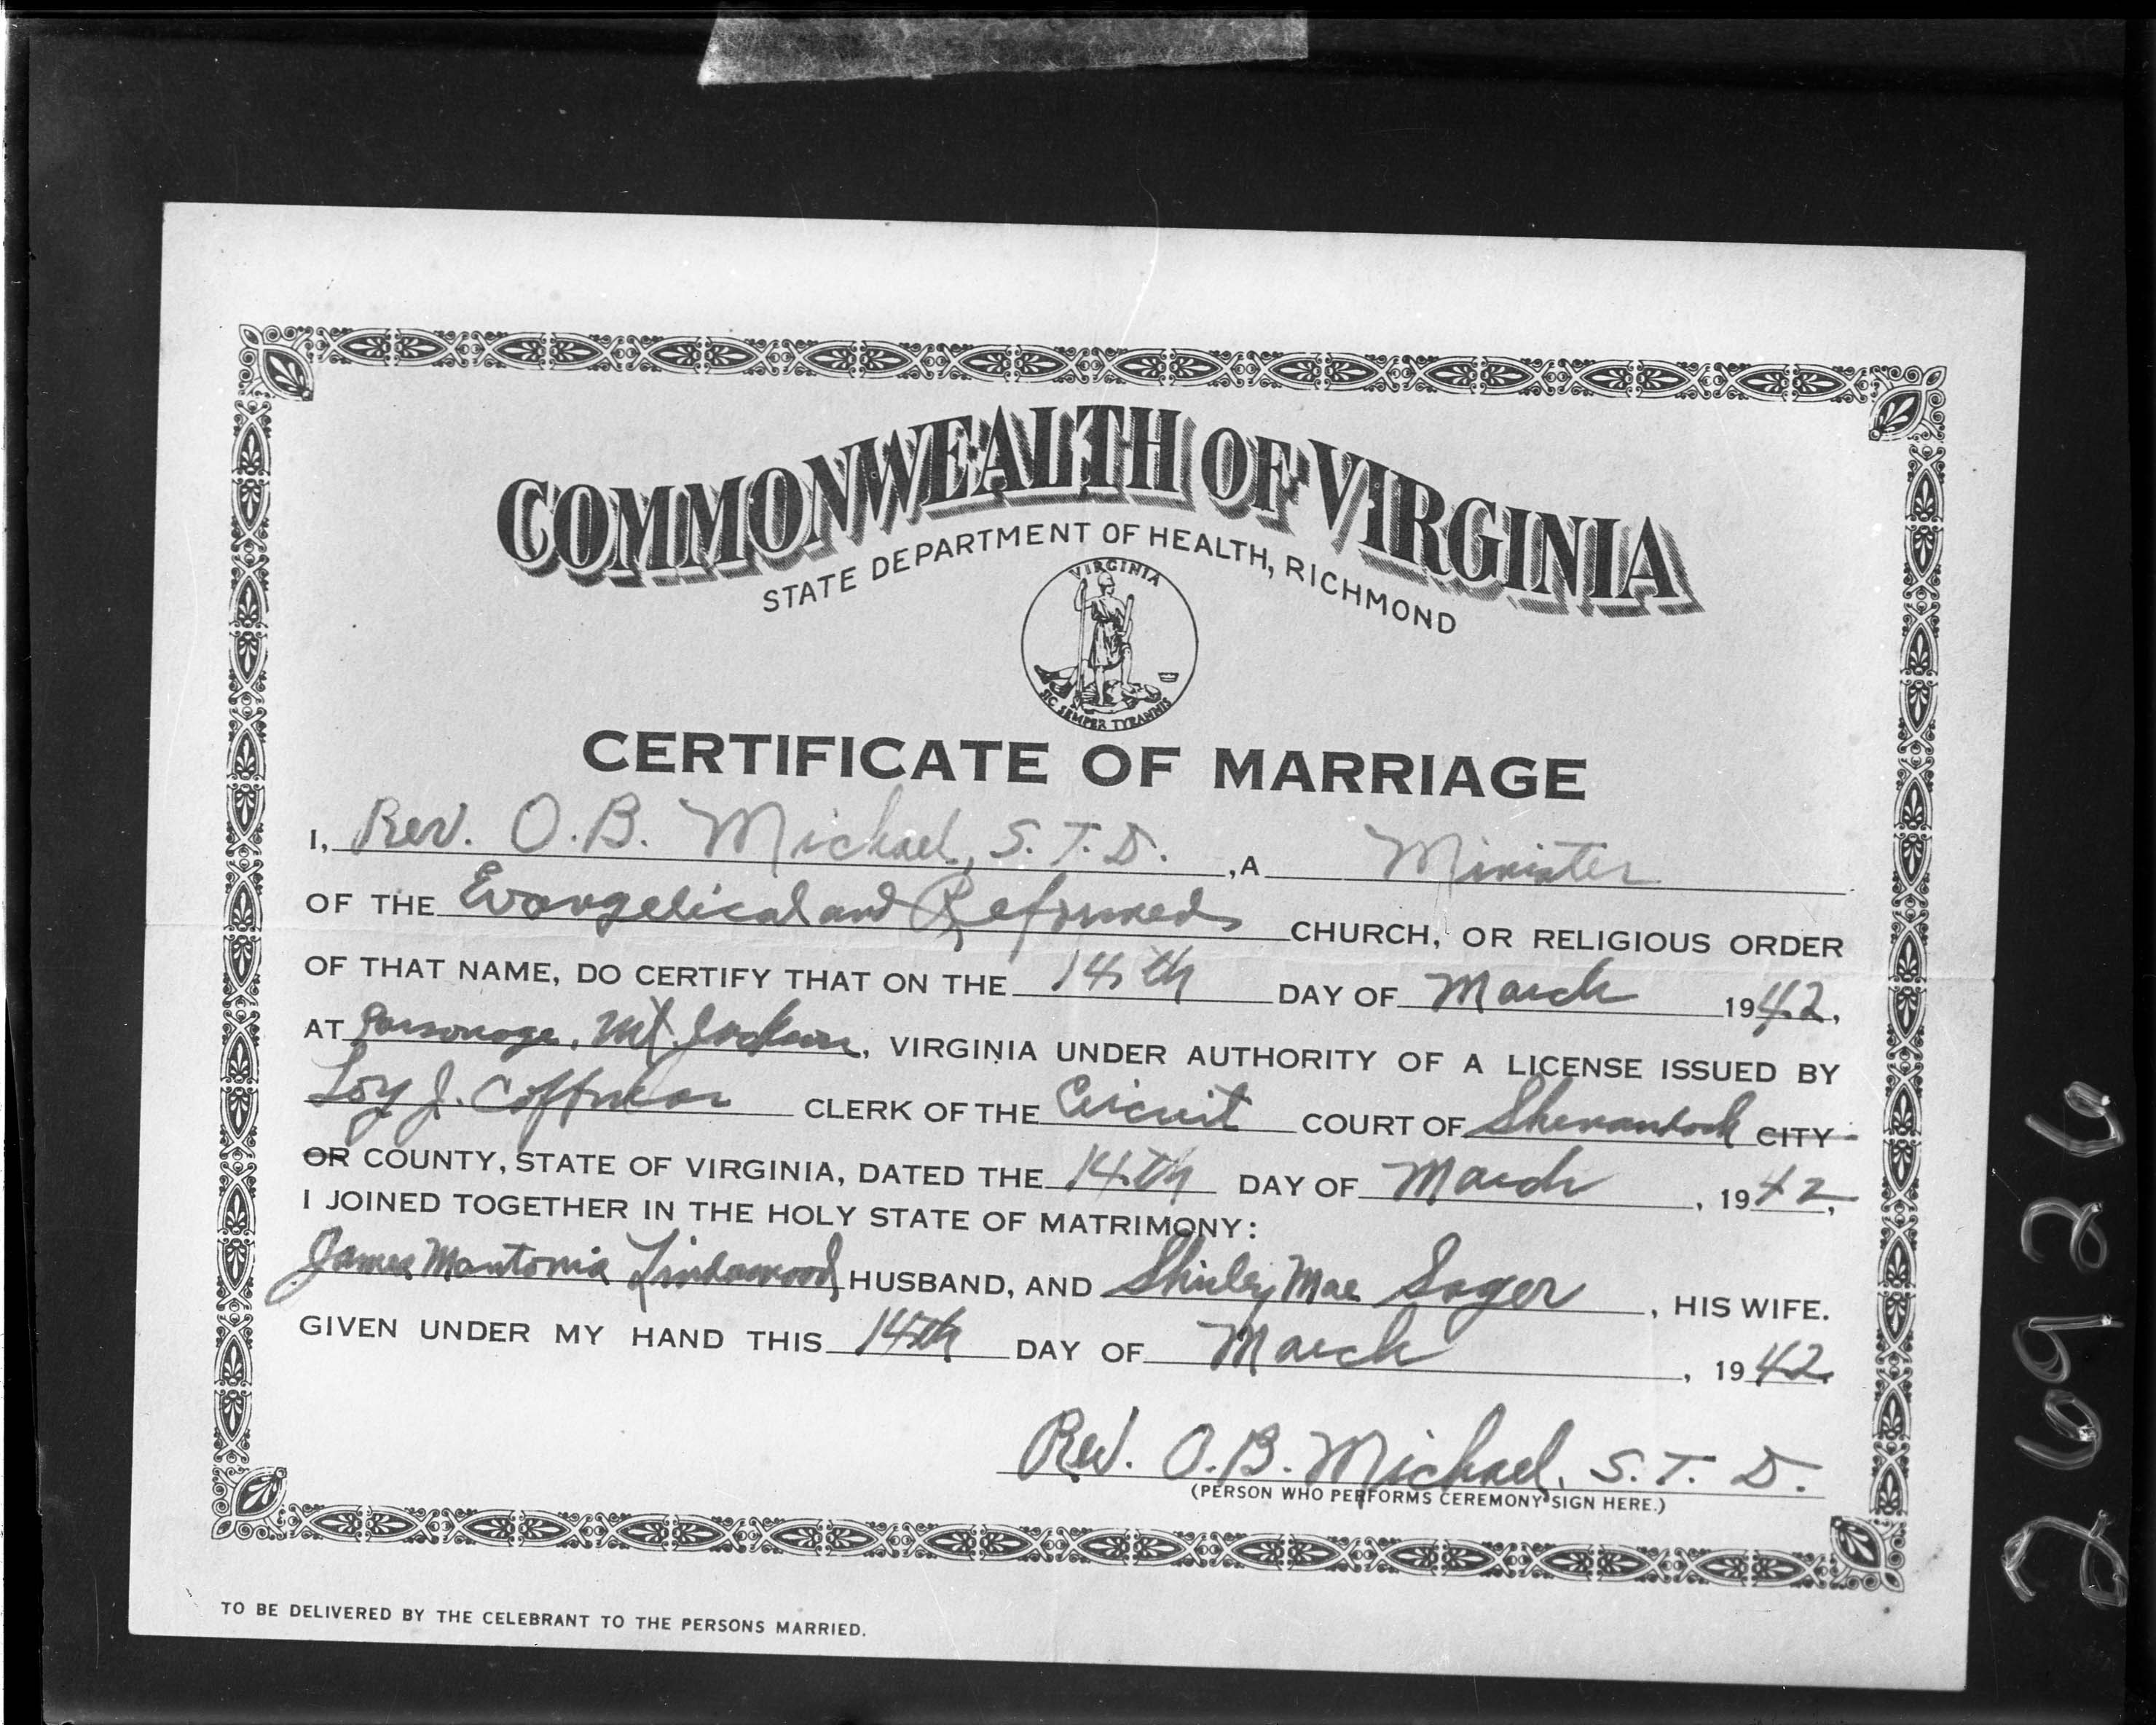 COMMONWEALTH OF VIRGINIA
STATE DEPARTMENT OF HEALTH, RICHMOND
VIRGINIA
SIC SEMPER TYRANNIS
CERTIFICATE OF MARRIAGE
I, Rev. O. B. Michael, S. T. D. , A Minister
OF THE Evangelical and Reformed CHURCH, OR RELIGIOUS ORDER
OF THAT NAME, DO CERTIFY THAT ON THE 14th DAY OF March 1942,
AT Parsonage, Mt. Jackson, VIRGINIA UNDER AUTHORITY OF A LICENSE ISSUED BY
Loy J. Coffman CLERK OF THE Circuit COURT OF Shenandoah CITY
OR COUNTY, STATE OF VIRGINIA, DATED THE 14th DAY OF March , 1942,
I JOINED TOGETHER IN THE HOLY STATE OF MATRIMONY:
James Mantonia Lindamood HUSBAND, AND Shirley Mae Sager , HIS WIFE.
GIVEN UNDER MY HAND THIS 14th DAY OF March , 1942.
Rev. O. B. Michael, S. T. D.
(PERSON WHO PERFORMS CEREMONY SIGN HERE.)
TO BE DELIVERED BY THE CELEBRANT TO THE PERSONS MARRIED.
26926